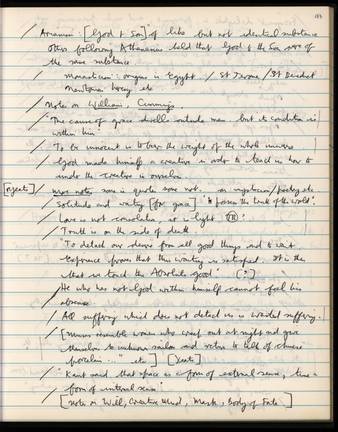 / Arianism: [God & Son] of like but not identical substance
Others following Athanasius held that God & the Son were of
the same substance
/ Monasticism: origins in Egypt / St Jerome / St Benedict
/ Notes on Williams, Cummings.
/ "The cause of grace dwells outside man but its condition is
within him"
/ To be innocent is to bear the weight of the whole universe
/ God made himself a creature in order to teach us how to
undo the creature in ourselves
[reject] / more notes, some in quote some not. on mysticism/poetry etc
/ Solitude and waiting [for grace] "to possess the truth of the world".
/ Love is not consolation, it is light
/ Truth is on the side of death
/ "To detach our desire from all good things and to wait.
Experience proves that this waiting is satisfied. It is then
that we touch the Absolute good"
/ He who has not God within himself cannot feel his
absence
/ All suffering which does not detach us is wasted suffering.
/ women who creep out at night and give
themselves to unknown sailors and return to talk of chinese
porcelain..." etc] [Yeats]
/ Kant said that space is a form of external sense, time a
form of internal sense
/ [note on Will, Creative Mind, Mask, Body of Fate]